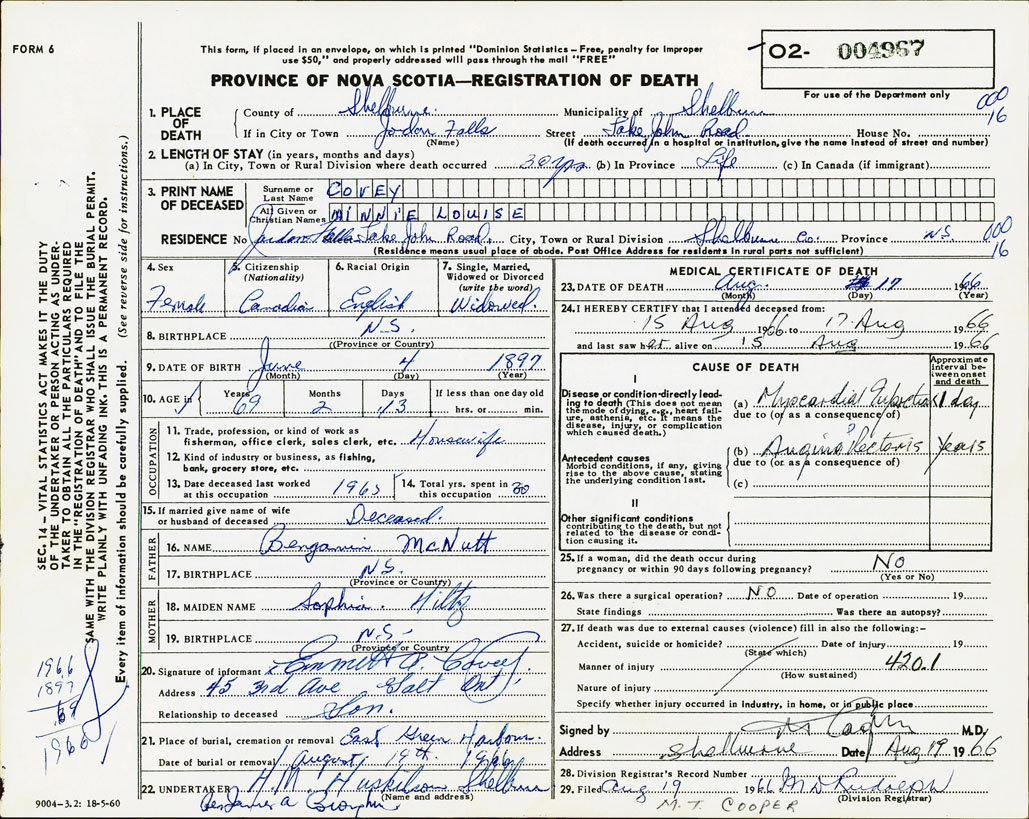 FORM 6
This form, if placed in an envelope, on which is printed "Dominion Statistics – Free, penalty for improper
use $50," and properly addressed will pass through the mail "FREE"
O2- 004967
For use of the Department only
PROVINCE OF NOVA SCOTIA—REGISTRATION OF DEATH
000
16
1. PLACE OF DEATH
County of Shelburne Municipality of Shelburne
If in City or Town Jordan Falls Street Lake John Road House No.
(Name) (If death occurred in a hospital or institution, give the name instead of street and number)
2. LENGTH OF STAY (in years, months and days)
(a) In City, Town or Rural Division where death occurred 30 yrs (b) In Province Life (c) In Canada (if immigrant)
3. PRINT NAME OF DECEASED
Surname or Last Name COVEY
All Given or Christian Names MINNIE LOUISE
RESIDENCE No Jordan Falls Street Lake John Road, City, Town or Rural Division Shelburne Co. Province N.S. 000
(Residence means usual place of abode. Post Office Address for residents in rural parts not sufficient) 16
4. Sex Female
5. Citizenship (Nationality) Canadian
6. Racial Origin English
7. Single, Married, Widowed or Divorced (write the word) Widowed.
8. BIRTHPLACE N.S.
(Province or Country)
9. DATE OF BIRTH June 4 1897
(Month) (Day) (Year)
10. AGE in Years 69 Months 2 Days 13 If less than one day old hrs. or min.
OCCUPATION
11. Trade, profession, or kind of work as
fisherman, office clerk, sales clerk, etc. Housewife
12. Kind of industry or business, as fishing,
bank, grocery store, etc.
13. Date deceased last worked at this occupation 1965
14. Total yrs. spent in this occupation 30
15. If married give name of wife
or husband of deceased Deceased.
FATHER
16. NAME Bengamin McNutt
17. BIRTHPLACE N.S.
(Province or Country)
MOTHER
18. MAIDEN NAME Sophia. Hiltz
19. BIRTHPLACE N.S.
(Province or Country
20. Signature of informant Emmett A. Covey
Address 45 3rd Ave Galt Ont.
Relationship to deceased Son.
21. Place of burial, cremation or removal East Green Harbour.
Date of burial or removal August 19th 1966
22. UNDERTAKER H.M. Huskilson Shelburne
(Name and address)
Per James A
MEDICAL CERTIFICATE OF DEATH
23. DATE OF DEATH Aug. 17 1966
(Month) (Day) (Year)
24. I HEREBY CERTIFY that I attended deceased from:
15 Aug 1966 to 17 Aug 1966
and last saw her alive on 15 Aug 1966
CAUSE OF DEATH
Approximate interval between onset and death
I
Disease or condition directly leading to death (This does not mean the mode of dying, e.g., heart failure, asthenia, etc. It means the disease, injury, or complication which caused death.)
(a) Myocardial Infarction 1 day
due to (or as a consequence of)
Antecedent causes
Morbid conditions, if any, giving rise to the above cause, stating the underlying condition last.
(b) Angina Pectoris years
due to (or as a consequence of)
(c)
II
Other significant conditions
contributing to the death, but not related to the disease or condition causing it.
25. If a woman, did the death occur during
pregnancy or within 90 days following pregnancy? No
(Yes or No)
26. Was there a surgical operation? NO Date of operation 19
State findings Was there an autopsy?
27. If death was due to external causes (violence) fill in also the following:–
Accident, suicide or homicide? Date of injury 19
(State which)
Manner of injury 420.1
(How sustained)
Nature of injury
Specify whether injury occurred in industry, in home, or in public place
Signed by M.D.
Address Shelburne Date Aug 19 1966
28. Division Registrar's Record Number
29. Filed Aug 19 1966 M D Rudolph
(Division Registrar)
M.T. COOPER
SEC. 14 – VITAL STATISTICS ACT MAKES IT THE DUTY
OF THE UNDERTAKER OR PERSON ACTING AS UNDER-
TAKER TO OBTAIN ALL THE PARTICULARS REQUIRED
IN THE "REGISTRATION OF DEATH" AND TO FILE THE
SAME WITH THE DIVISION REGISTRAR WHO SHALL ISSUE THE BURIAL PERMIT.
WRITE PLAINLY WITH UNFADING INK. THIS IS A PERMANENT RECORD.
Every item of information should be carefully supplied. (See reverse side for instructions.)
1966
1897
69
1966
9004–3.2: 18-5-60